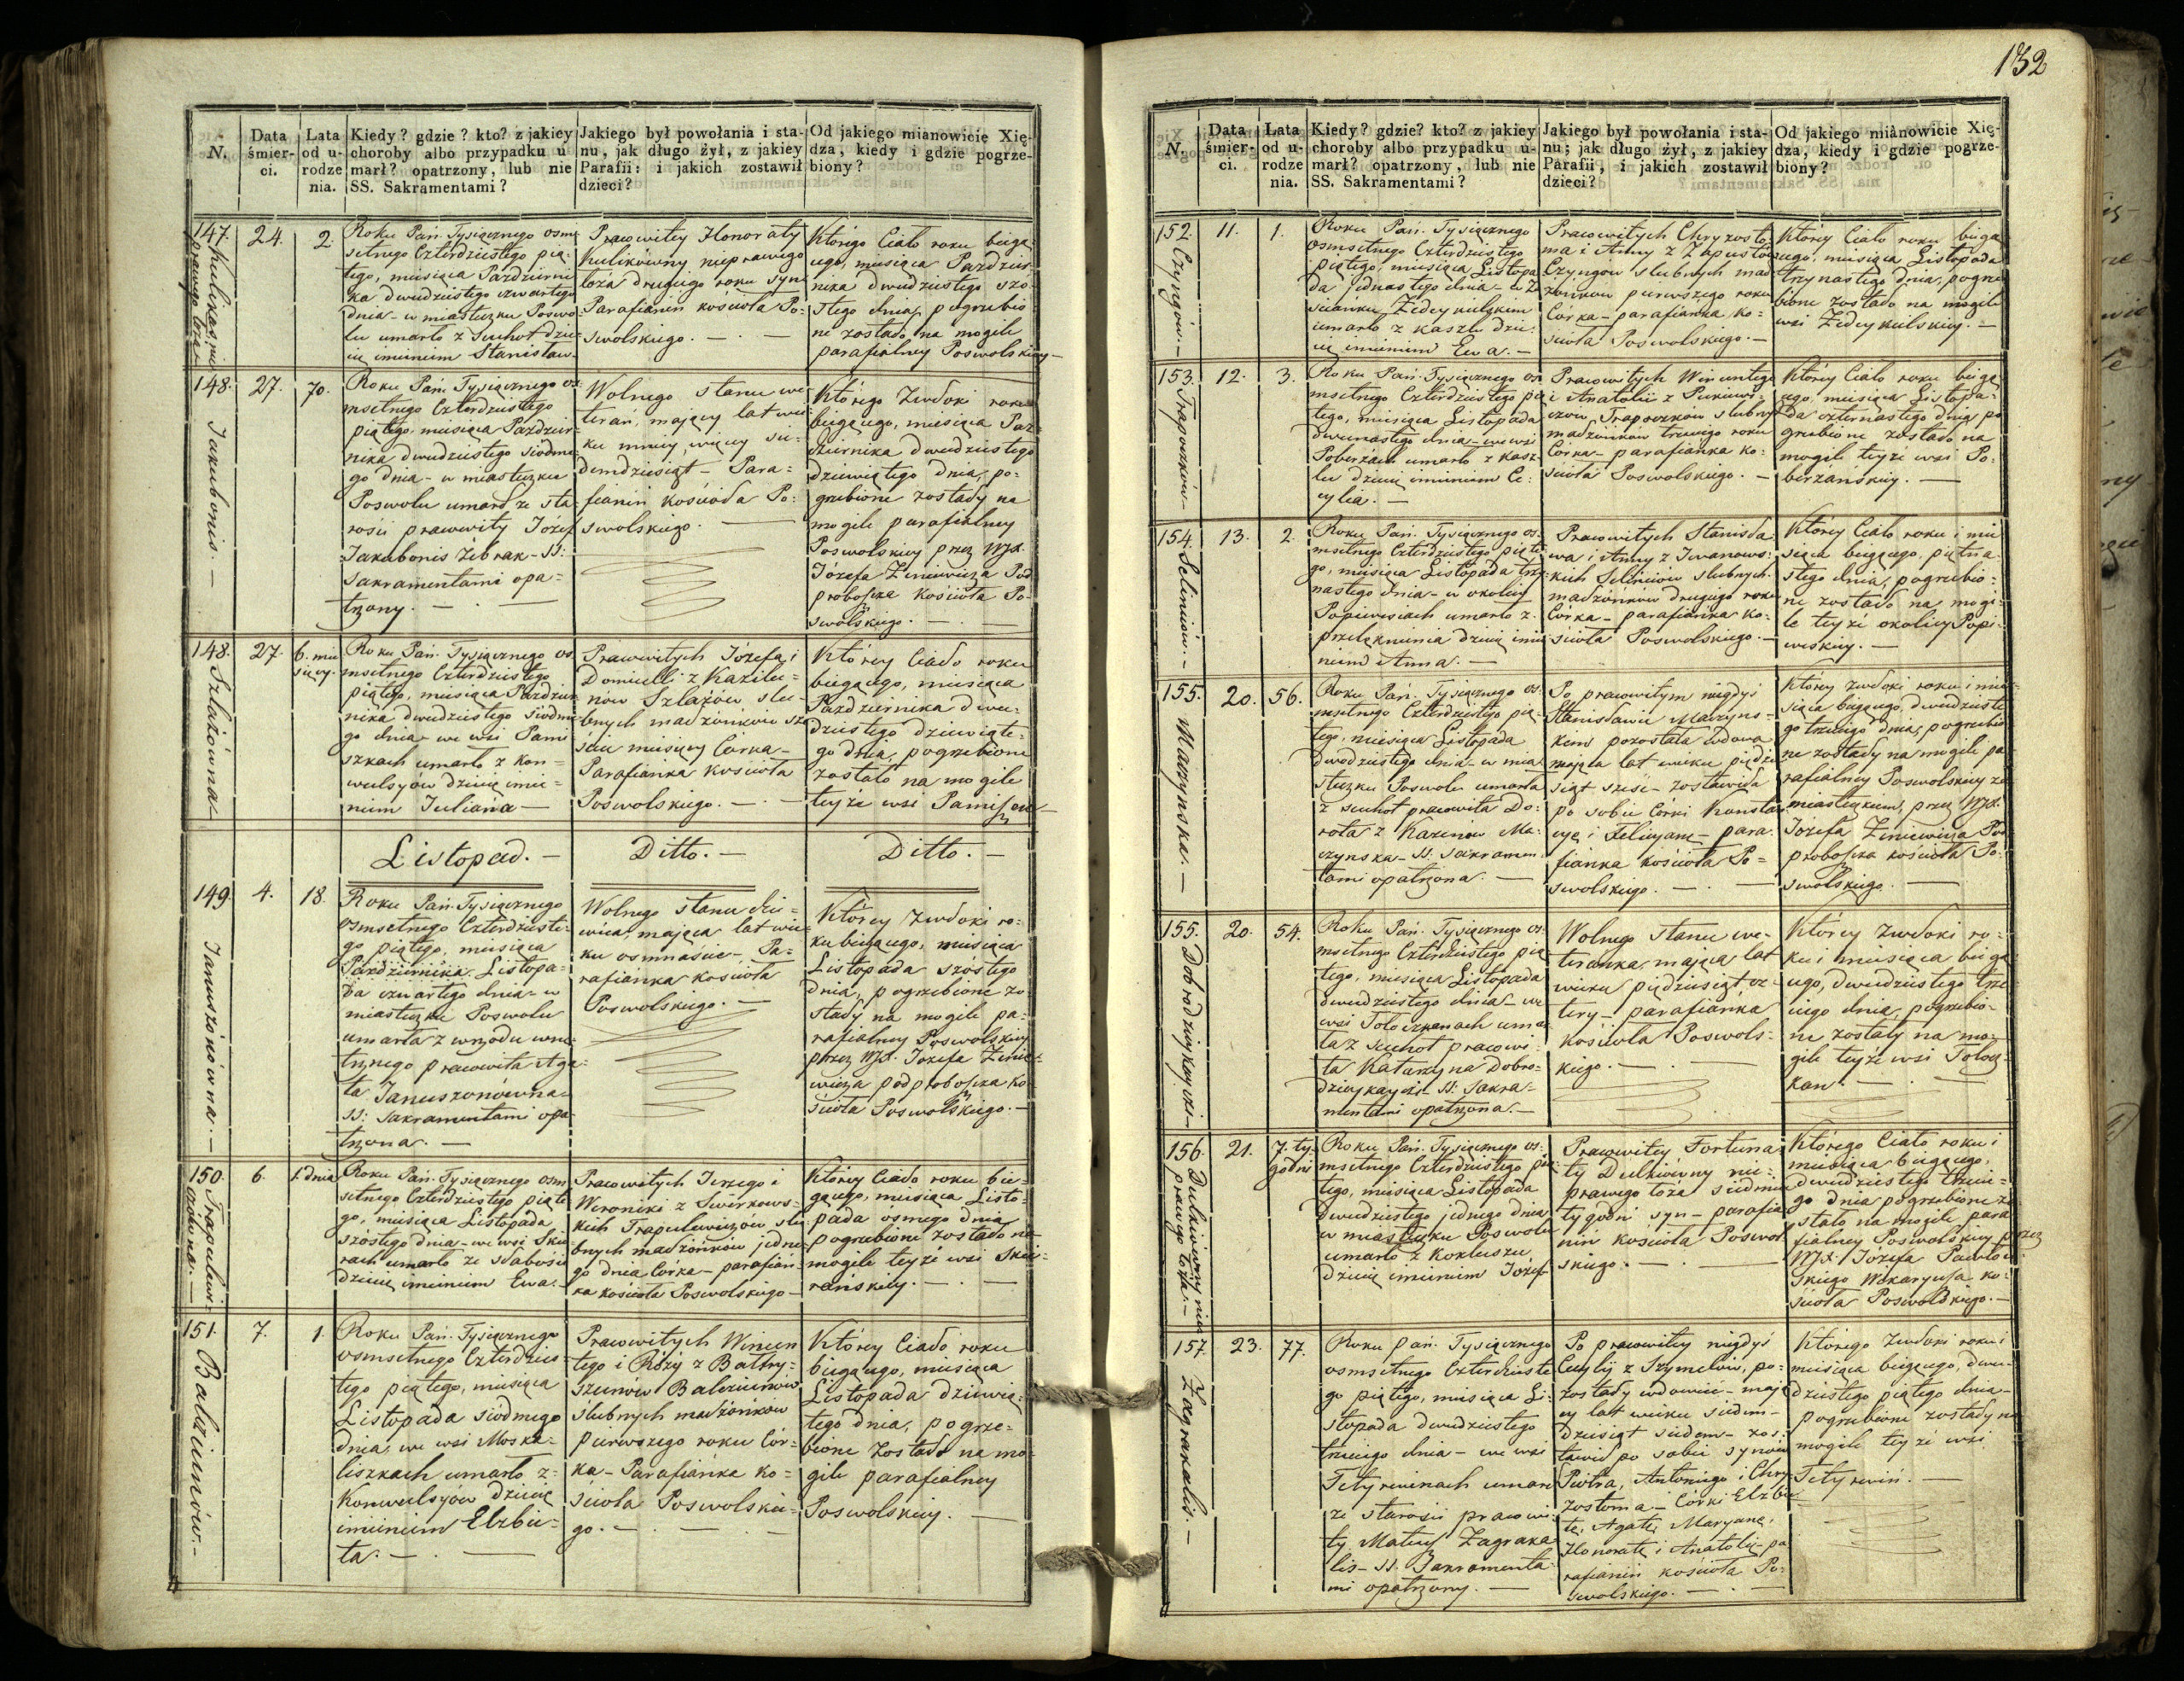 132
N.
Data śmier-ci.
Lata od u-rodze nia.
Kiedy? gdzie? kto? z jakiey
choroby albo przypadku u-
marł? opatrzony, lub nie
SS. Sakramentami?
Jakiego był powołania i sta-
nu, jak długo żył, z jakiey
Parafii: i jakich zostawił
dzieci?
Od jakiego mianowicie Xię-
dza, kiedy i gdzie pogrze-
biony?
147.
24.
2.
Roku Pań. Tysiącznego osm
setnego Czterdziestego pią-
tego, miesiąca Październi
ka dwudziestego czwartego
dnia - w miasteczku Poswo
lu umarło z Suchot dzie-
cie imieniem Stanisław.
Pracowitey Honoraty
Kulikówny nieprawego
łoża drugiego roku syn
Parafianin kościoła Po-
swolskiego. —
Którego Ciało roku bieżą
cego, miesiąca Paździer-
nika dwudziestego szó-
stego dnia, pogrzebio
ne zostało na mogile
parafialney Poswolskiey —
148.
Jakubonis. —
27.
70.
Roku Pań. Tysiącznego os-
msetnego Czterdziestego
piątego, miesiąca Paździer-
nika dwudziestego siódme-
go dnia - w miasteczku
Poswolu umarł ze sta-
rości pracowity Jozef
Jakubonis żebrak - SS:
Sakramentami opa-
trzony. —
Wolnego stanu we-
teran, mający lat wie-
ku mniey więcey sie-
demdziesiąt - Para-
fianin kościoła Po-
swolskiego. —
Którego Zwłoki roku
bieżącego, miesiąca Paź-
dziernika dwudziestego
dziewiątego dnia, po-
grzebione zostały na
mogile parafialney
Poswolskiey przez WJX.
Józefa Ziniewicza Pod
proboszcza kościoła Po-
swolskiego. —
148.
Szlażówna
27.
6. mie
sięcy.
Roku Pań. Tysiącznego os
msetnego Czterdziestego
piątego, miesiąca Paździer
nika dwudziestego siódme
go dnia - we wsi Pami
szkach umarło z kon-
wulsyów dziecię imie-
niem Julianna —
Pracowitych Józefa i
Domiceli z Kazile-
nów Szlażów slu-
bnych małżonków sze
ściu miesięcy Córka -
Parafianka kościoła
Poswolskiego. —
Którey Ciało roku
bieżącego, miesiąca
Października dwu-
dziestego dziewiąte-
go dnia, pogrzebione
zostało na mogile
teyże wsi
Listopad. —
Ditto. —
Ditto. —
149.
Januszonówna. —
4.
18.
Roku Pań. Tysiącznego
osmsetnego Czterdzieste-
go piątego, miesiąca
Października Listopa-
da czwartego dnia - w
miasteczku Poswolu
umarła z wrzodu wne-
trznego pracowita Aga-
ta Januszonówna
SS: Sakramentami opa-
trzona. —
Wolnego stanu dzie-
wica, mająca lat wie-
ku osmnaście - Pa-
rafianka kościoła
Poswolskiego. —
Którey Zwłoki ro-
ku bieżącego, miesiąca
Listopada szóstego
dnia, pogrzebione zo-
stały na mogile pa-
rafialney Poswolskiey
przez WJX. Jozefa Zinie-
wicza podproboszcza ko-
ścioła Poswolskiego. —
150.
6.
1. dnia
Roku Pań. Tysiącznego osm
setnego Czterdziestego piąte
go, miesiąca Listopada
szóstego dnia - we wsi Skie
rach umarło ze słabości
dziecię imieniem Ewa. —
Pracowitych Jerzego i
Weroniki z Swirkows-
kich Trapulewiczów slu
bnych małżonków jedne-
go dnia Córka - parafian
ka kościoła Poswolskiego —
Którey Ciało roku bie-
żącego, miesiąca Listo-
pada ósmego dnia
pogrzebione zostało na
mogile teyże wsi
151.
Balzieunów. —
7.
1.
Roku Pań. Tysiącznego
osmsetnego Czterdzies-
tego piątego, miesiąca
Listopada siódmego
dnia, we wsi Moska-
liszkach umarło z
Konwulsyów dziecię
imieniem Elzbie-
ta. —
Pracowitych Wincen
tego i Róży z Bałtry-
szunów
Slubnych małżonków
pierwszego roku Cór-
ka - Parafianka ko-
ścioła Poswolskie-
go. —
Którey Ciało roku
bieżącego, miesiąca
Listopada dziewią-
tego dnia, pogrze-
bione zostało na mo-
gile parafialney
Poswolskiey. —
N.
Data śmier-ci.
Lata od u-rodze nia.
Kiedy? gdzie? kto? z jakiey
choroby albo przypadku u-
marł? opatrzony, lub nie
SS. Sakramentami?
Jakiego był powołania i sta-
nu; jak długo żył, z jakiey
Parafii, i jakich zostawił
dzieci?
Od jakiego mianowicie Xię-
dza, kiedy i gdzie pogrze-
biony?
152.
Czyngów. —
11.
1.
Roku Pań. Tysiącznego
osmsetnego Czterdziestego
piątego, miesiąca Listopa
da jednastego dnia - w Za
ścianku Zideykielskim
umarło z kaszlu dzie-
cię imieniem Ewa. —
Pracowitych Chryzosto
ma i Anny z Łapustów
Czyngów slubnych mał
żonków pierwszego roku
Córka - parafianka ko-
ścioła Poswolskiego. —
Którey Ciało roku bieżą
cego, miesiąca Listopada
trzynastego dnia, pogrze
bione zostało na mogile
wsi Zideykielskiey. —
153.
12.
3.
Roku Pań. Tysiącznego os
msetnego Czterdziestego pią
tego, miesiąca Listopada
dwunastego dnia - we wsi
Poberżach umarło z kasz-
lu dziecię imieniem Ce-
cylia. —
Pracowitych Wincentego
i Anatolii z
slubny
małżonków trzeciego roku
Córka - parafianka ko-
ścioła Poswolskiego. —
Którey Ciało roku bieżą
cego, miesiąca Listopa-
da czternastego dnia po
grzebione zostało na
mogile teyże wsi Po-
berżańskiey. —
154.
Seliniów. —
13.
2.
Roku Pań. Tysiącznego os-
msetnego Czterdziestego piąte
go, miesiąca Listopada trzy-
nastego dnia - w okolicy
Popiewesiach umarło z
przelęknienia dziecię imie
niem Anna. —
Pracowitych Stanisła
wa i Anny z Iwanows-
kich Seliniów slubnych
małżonków drugiego roku
Córka - parafianka ko-
ścioła Poswolskiego. —
Którey Ciało roku i mie
siąca bieżącego, piętna-
stego dnia, pogrzebio-
ne zostało na mogi-
le teyże okolicy Popi-
weskiey. —
155.
Marzynska. —
20.
56.
Roku Pań. Tysiącznego os-
msetnego Czterdziestego pią-
tego, miesiąca Listopada
dwudziestego dnia - w mia
steczku Poswolu umarła
z suchot pracowita Do-
rota z Kazenów Ma-
rzynska - SS: Sakramen
tami opatrzona. —
Po pracowitym niegdyś
Stanisławie Marzyns-
kim pozostała wdowa
mająca lat wieku pięćdzie
siąt sześć - zostawiła
po sobie Córki Konstan
cyę i Felicyanę - para-
fianka kościoła Po-
swolskiego. —
Którey zwłoki roku i mie
siąca bieżącego, dwudzieste
go trzeciego dnia, pogrzebio
ne zostały na mogile pa-
rafialney Poswolskiey za
miasteczkiem, przez WJX.
Józefa Ziniewicza Pod
proboszcza kościoła Po-
swolskiego. —
155.
20.
54.
Roku Pań. Tysiącznego os-
msetnego Czterdziestego pią
tego, miesiąca Listopada
dwudziestego dnia - we
wsi Toloczkanach umar
ła z suchot pracowi-
ta Katarzyna
SS: Sakra-
mentami opatrzona. —
Wolnego stanu we-
teranka, mająca lat
wieku pięćdziesiąt cz-
tery - parafianka
kościoła Poswols-
kiego. —
Którey zwłoki ro-
ku i miesiąca bieżą
cego, dwudziestego trze
ciego dnia, pogrzebio-
ne zostały na mo-
gile teyże wsi Tolocz-
kan. —
156.
21.
7. ty-
godni
Roku Pań. Tysiącznego os-
msetnego Czterdziestego pią-
tego, miesiąca Listopada
dwudziestego jednego dnia
w miasteczku Poswolu
umarło z kokluszu
dziecię imieniem Jozef
Pracowitey Fortuna-
ty Dulkiewny nie-
prawego łoża siedmiu
tygodni syn - parafia
nin kościoła Poswol
skiego. —
Którego Ciało roku i
miesiąca bieżącego,
dwudziestego trzecie-
go dnia pogrzebione zo
stało na mogile para
fialney Poswolskiey przez
WJX. Józefa Pawłow
skiego Wikaryusza ko-
ścioła Poswolskiego. —
157.
Zagrakalis. —
23.
77.
Roku Pań. Tysiącznego
osmsetnego Czterdzieste
go piątego, miesiąca Li-
stopada dwudziestego
trzeciego dnia - we wsi
Tetyrwinach umarł
ze starości pracowi-
ty Matey Zagraka
lis - SS. Sakramenta-
mi opatrzony. —
Po pracowitey niegdyś
Cecylij z Szymelów, po-
zostały wdowiec - mają
cy lat wieku siedem-
dziesiąt siedem - zos-
tawił po sobie synów
Piotra, Antoniego i Chry
zostoma - Córki Elzbie
tę, Agatę, Maryannę,
Honoratę i Anatolię - pa
rafianin kościoła Po-
swolskiego. —
Którego zwłoki roku i
miesiąca bieżącego, dwu-
dziestego piątego dnia -
pogrzebione zostały na
mogile teyże wsi
Tetyrwin. —